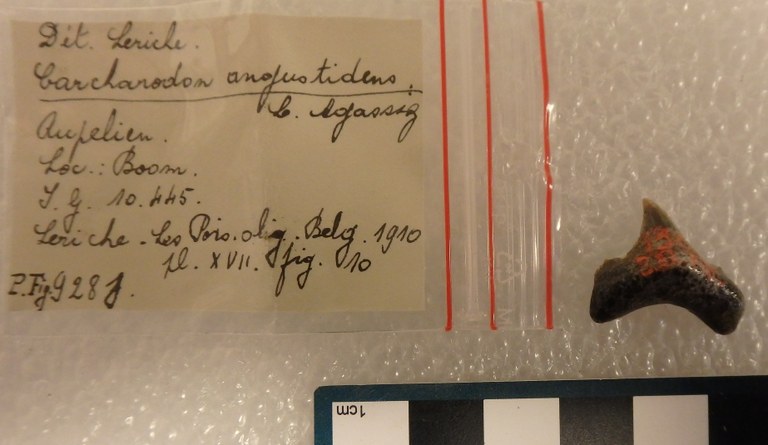 Dét. Leriche.
Carcharodon angustidens.
L. Agassiz
Rupelien.
Loc.: Boom.
I. G. 10.445.
Leriche. Les Pois. olig. Belg. 1910
pl. XVII. fig. 10
P. Fig 928 f.
1cm